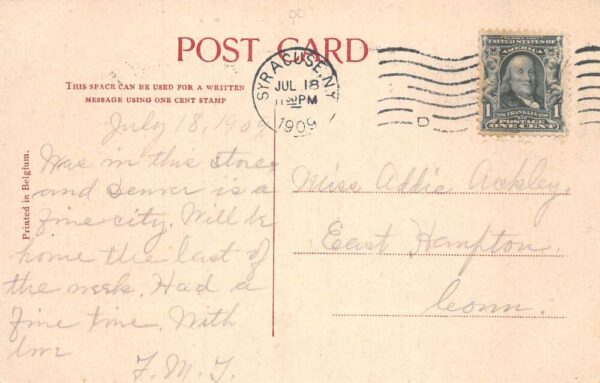 OC
POST CARD
THIS SPACE CAN BE USED FOR A WRITTEN
MESSAGE USING ONE CENT STAMP
Printed in Belgium.
SYRACUSE, N.Y.
JUL 18
PM
1909
D
UNITED STATES OF
AMERICA
FRANKLIN
1 1
POSTAGE
ONE CENT
July 18, 1909
Was in this store,
and Denver is a
fine city. Will be
home the last of
the week. Had a
fine time. With
love
F. M. T.
Miss Addie Ackley,
East Hampton
Conn.